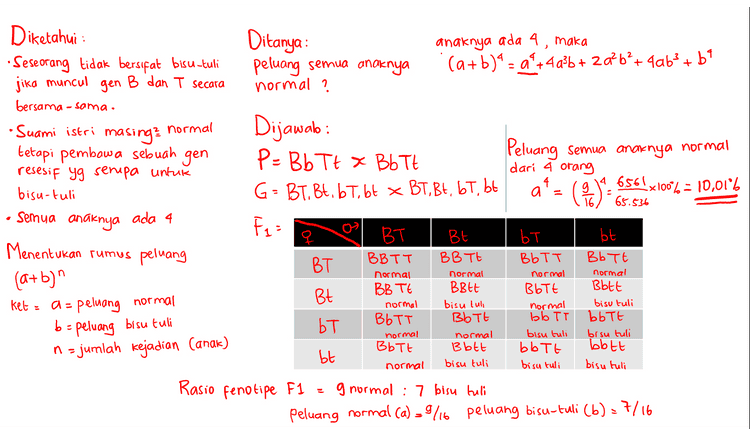 Diketahui:
• Seseorang tidak bersifat bisu-tuli
jika muncul gen B dan T secara
bersama-sama.
• Suami istri masing² normal
tetapi pembawa sebuah gen
resesif yg serupa untuk
bisu-tuli
• Semua anaknya ada 4
Menentukan rumus peluang
(a+b)ⁿ
ket = a = peluang normal
b = peluang bisu tuli
n = jumlah kejadian (anak)
Ditanya:
peluang semua anaknya
normal ?
anaknya ada 4, maka
(a+b)⁴ = a⁴+4a³b+2a²b²+4ab³+b⁴
Dijawab:
P = BbTt × BbTt
G = BT, Bt, bT, bt × BT, Bt, bT, bt
Peluang semua anaknya normal
dari 4 orang
a⁴ = (9/16)⁴ = 6561/65.536 ×100% = 10,01%
F₁ =
♀ ♂ BT Bt bT bt
BT BBTT BBTt BbTT BbTt
normal normal normal normal
Bt BBTt BBtt BbTt Bbtt
normal bisu tuli normal bisu tuli
bT BbTT BbTt bbTT bbTt
normal normal bisu tuli bisu tuli
bt BbTt Bbtt bbTt bbtt
normal bisu tuli bisu tuli bisu tuli
Rasio fenotipe F1 = 9 normal : 7 bisu tuli
Peluang normal (a) = 9/16 peluang bisu-tuli (b) = 7/16